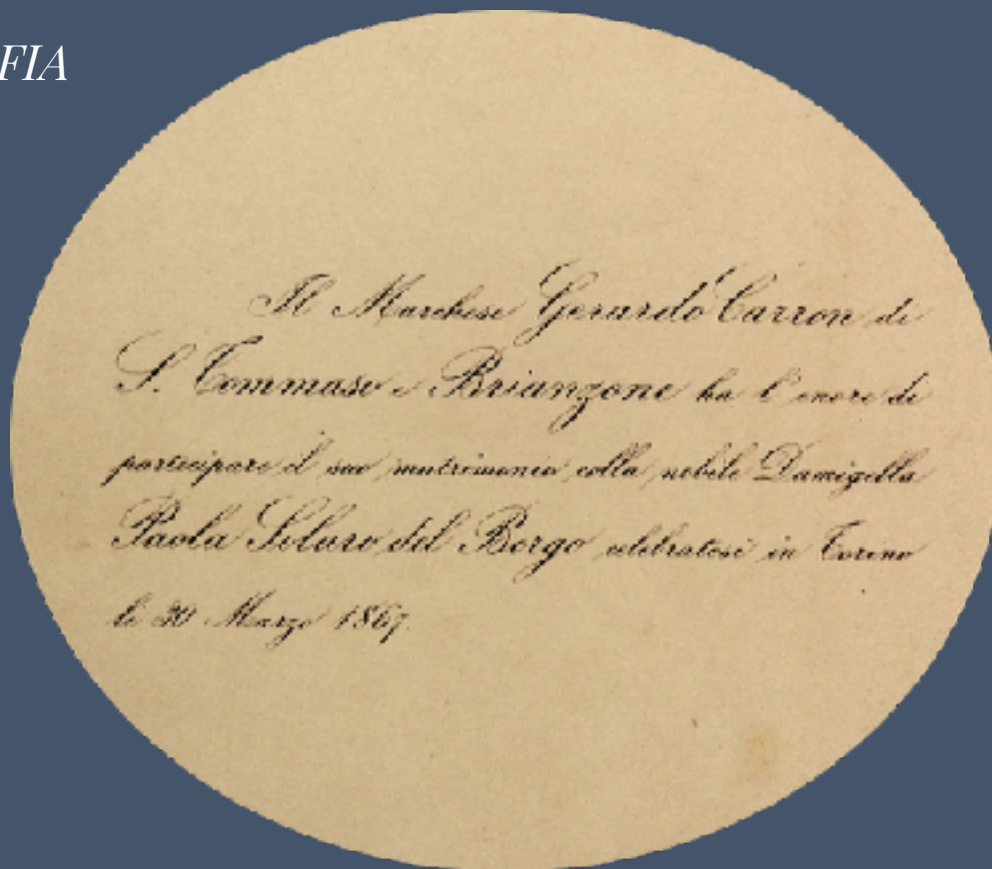 FIA
Il Marchese Gerardo Carron di
S. Tommaso e Brianzone ha l'onore di
partecipare il suo matrimonio colla nobile Damigella
Paola Solaro del Borgo celebratosi in Torino
li 30 Marzo 1867.